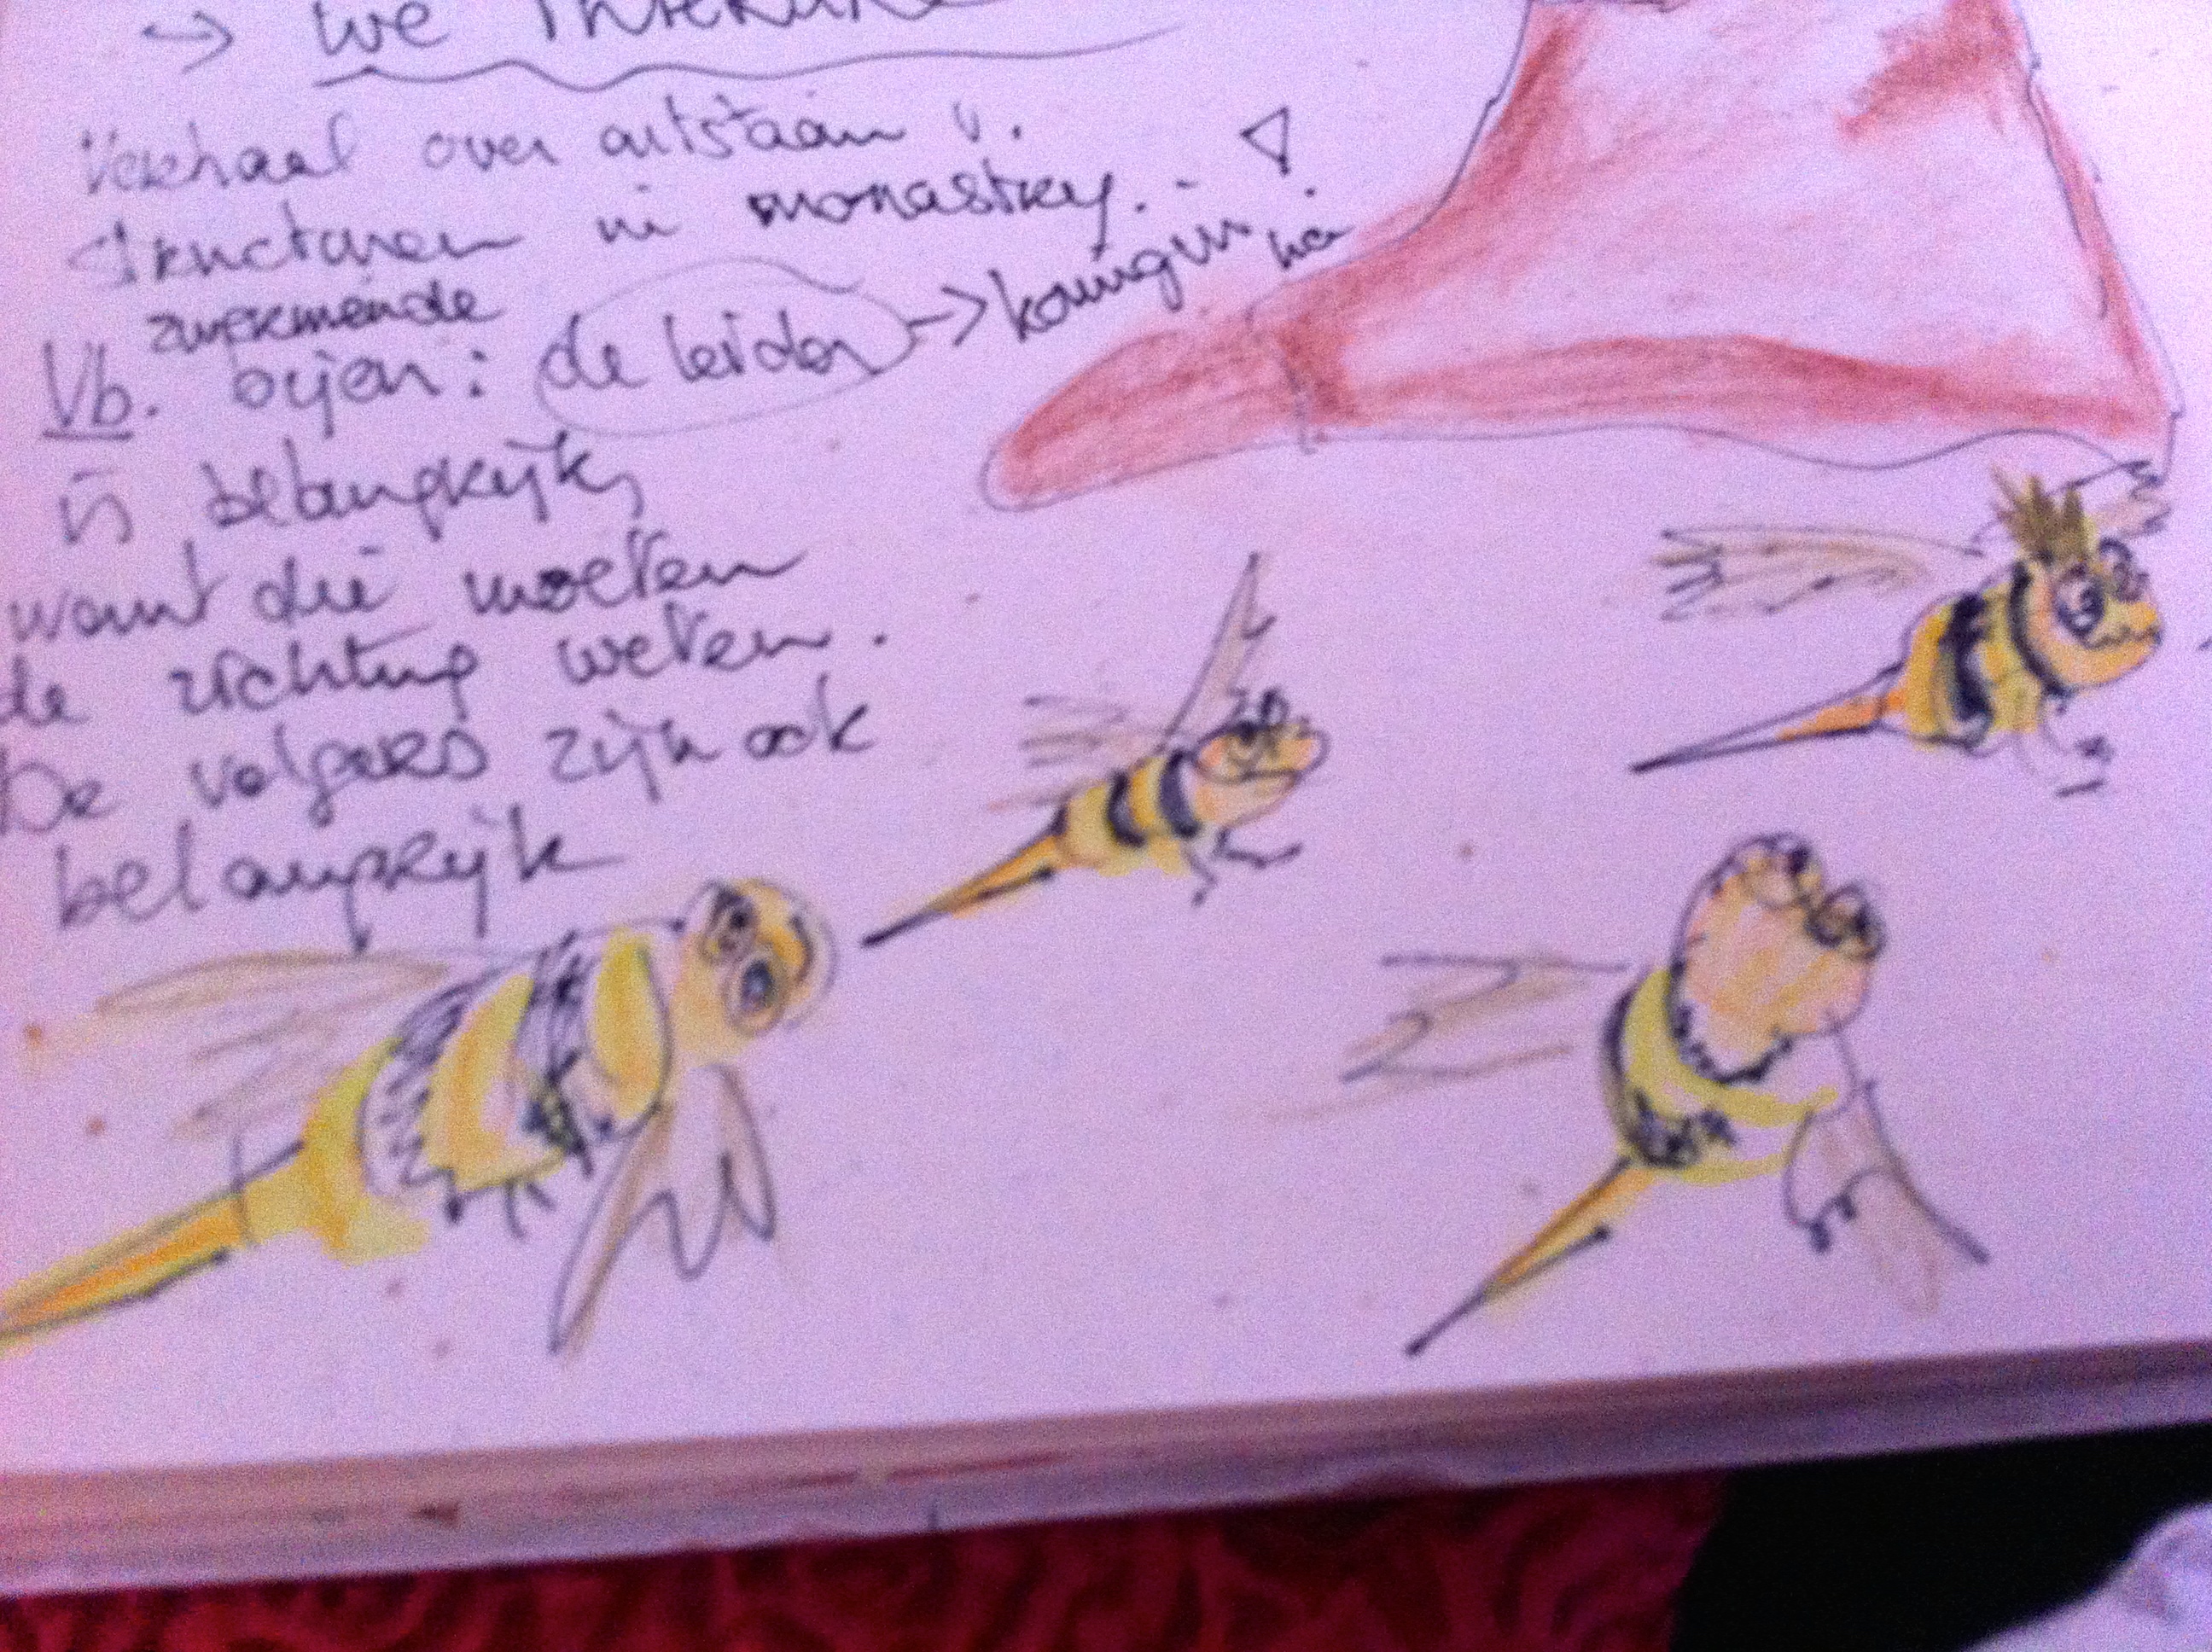 → we
Verhaal over ontstaan v.
structuren in monastrey.
zwermende
Vb. bijen: de leider → koningin
is belangrijk,
want die moeten
de richting weten.
De volgers zijn ook
belangrijk